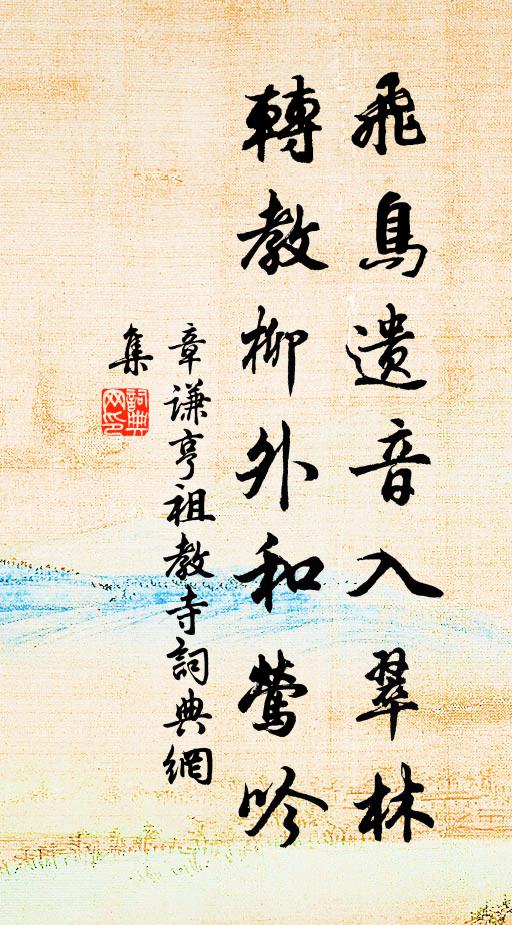 飛鳥遺音入翠林
轉教柳外和鶯吟
章謙亨祖教寺詞典網
集
詞典網印